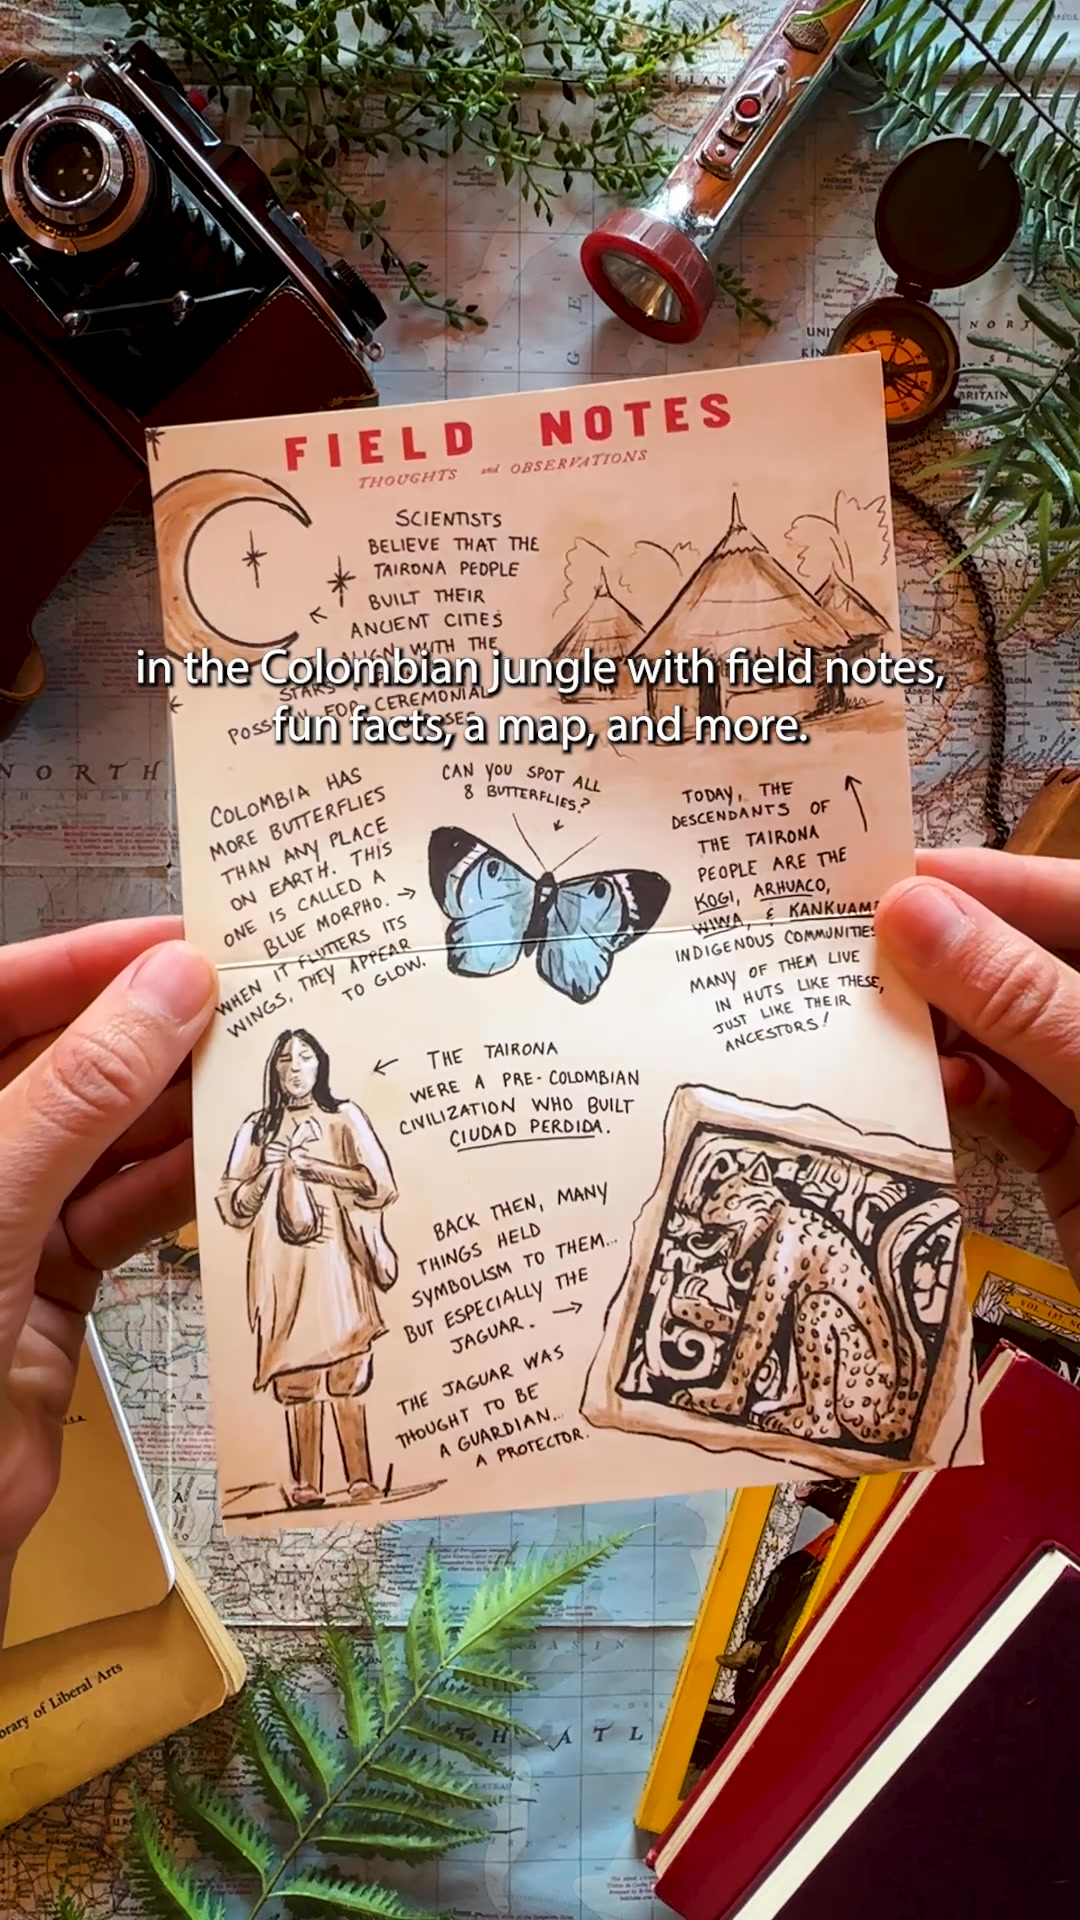 FIELD NOTES
THOUGHTS and OBSERVATIONS
SCIENTISTS
BELIEVE THAT THE
TAIRONA PEOPLE
BUILT THEIR
ANCIENT CITIES
ALIGN WITH THE
STARS
FOR CEREMONIAL
in the Colombian jungle with field notes,
fun facts, a map, and more.
COLOMBIA HAS
MORE BUTTERFLIES
THAN ANY PLACE
ON EARTH. THIS
ONE IS CALLED A
BLUE MORPHO.
WHEN IT FLUTTERS ITS
WINGS, THEY APPEAR
TO GLOW.
CAN YOU SPOT ALL
8 BUTTERFLIES?
TODAY, THE
DESCENDANTS OF
THE TAIRONA
PEOPLE ARE THE
KOGI, ARHUACO,
WIWA, & KANKUAMO
INDIGENOUS COMMUNITIES
MANY OF THEM LIVE
IN HUTS LIKE THESE,
JUST LIKE THEIR
ANCESTORS!
THE TAIRONA
WERE A PRE-COLOMBIAN
CIVILIZATION WHO BUILT
CIUDAD PERDIDA.
BACK THEN, MANY
THINGS HELD
SYMBOLISM TO THEM...
BUT ESPECIALLY THE
JAGUAR.
THE JAGUAR WAS
THOUGHT TO BE
A GUARDIAN...
A PROTECTOR.
UNIT
NORT
BRITAIN
NORTH
VOL. 137
rary of Liberal Arts
BASIN
H ATL